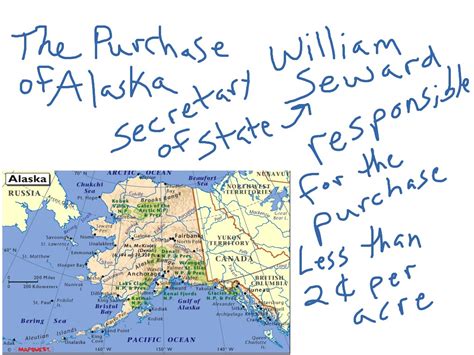 The Purchase
of Alaska
secretary
of state
William
Seward
responsible
for the
purchase
Less than
2¢ per
acre
Alaska
RUSSIA
ARCTIC OCEAN
Chukchi
Sea
Beaufort
Sea
NUNAVUT
NORTHWEST
TERRITORIES
YUKON
TERRITORY
CANADA
BRITISH
COLUMBIA
Fairbanks
Anchorage
Juneau
Bristol
Bay
Gulf of
Alaska
Bering Sea
Aleutian Islands
PACIFIC OCEAN
MAPQUEST